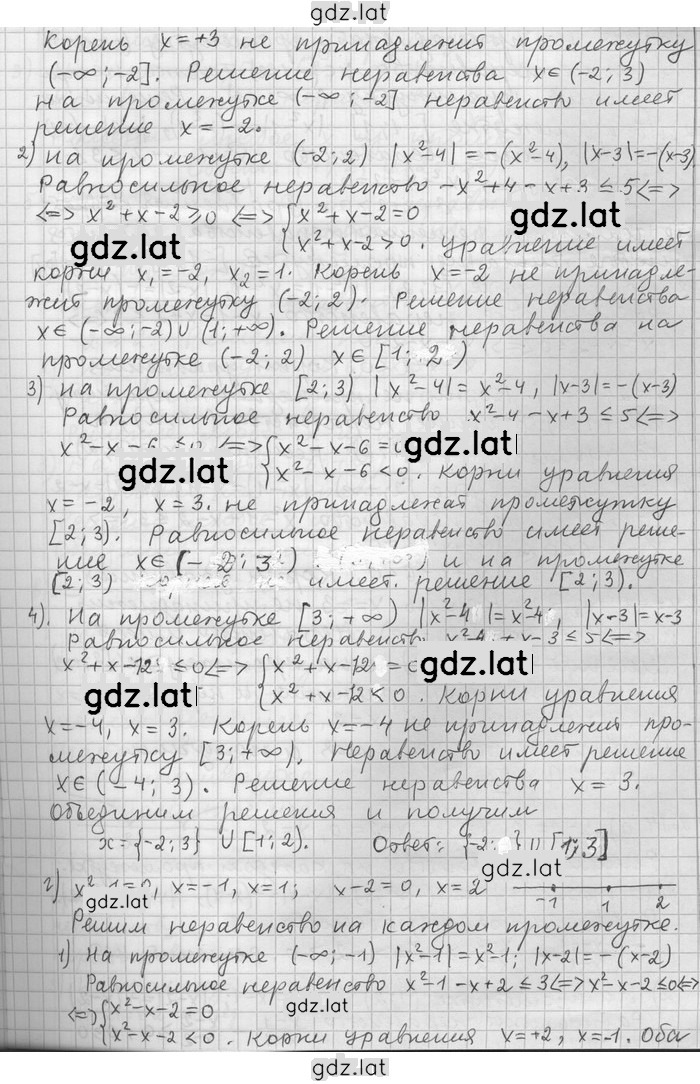 gdz.lat
Корень x=+3 не принадлежит промежутку
(-∞;-2]. Решение неравенства x∈(-2; 3)
на промежутке (-∞;-2] неравенство имеет
решение x=-2.
2) на промежутке (-2; 2) |x²-4|=-(x²-4), |x-3|=-(x-3)
Равносильное неравенство -x²+4-x+3≤5<=>
<=> x²+x-2≥0 <=> {x²+x-2=0
gdz.lat gdz.lat
{x²+x-2>0. Уравнение имеет
корни x₁=-2, x₂=1. Корень x=-2 не принадле-
жит промежутку (-2; 2). Решение неравенства
x∈(-∞;-2)∪(1;+∞). Решение неравенства на
промежутке (-2; 2) x∈[1; 2)
3) на промежутке [2; 3) |x²-4|=x²-4, |x-3|=-(x-3)
Равносильное неравенство x²-4-x+3≤5<=>
x²-x-6≤0 <=> {x²-x-6=0
gdz.lat gdz.lat
{x²-x-6<0. Корни уравнения
x=-2, x=3. не принадлежат промежутку
[2; 3). Равносильное неравенство имеет реше-
ние x∈(-2; 3) и на промежутке
[2; 3) имеет решение [2; 3).
4). На промежутке [3;+∞) |x²-4|=x²-4, |x-3|=x-3
Равносильное неравенство x²-4+x-3≤5<=>
x²+x-12≤0<=> {x²+x-12=0
gdz.lat gdz.lat
{x²+x-12<0. Корни уравнения
x=-4, x=3. Корень x=-4 не принадлежит про-
межутку [3;+∞). Неравенство имеет решение
x∈(-4; 3). Решение неравенства x=3.
Объединим решения и получим
x={-2; 3} ∪[1; 2). Ответ: {-2 } ∪ [1; 3]
gdz.lat
г) x²-1=0, x=-1, x=1; x-2=0, x=2 -1 1 2
gdz.lat
Решим неравенство на каждом промежутке.
1) на промежутке (-∞;-1) |x²-1|=x²-1; |x-2|=-(x-2)
Равносильное неравенство x²-1-x+2≤3<=>x²-x-2≤0<=>
gdz.lat
<=>{x²-x-2=0
{x²-x-2<0. Корни уравнения x=+2, x=-1. Оба
gdz.lat